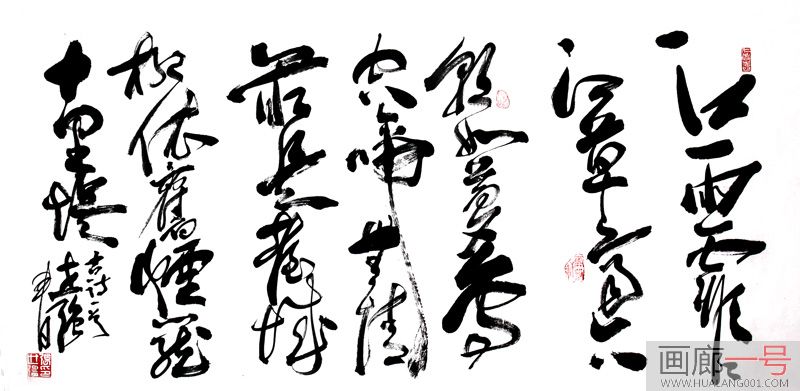 江雨霏霏
江草齊六
朝如夢鳥
空啼無情
最是臺城
柳依舊煙籠
十里堤
古诗一首
画廊一号
WWW.HUALANG001.COM